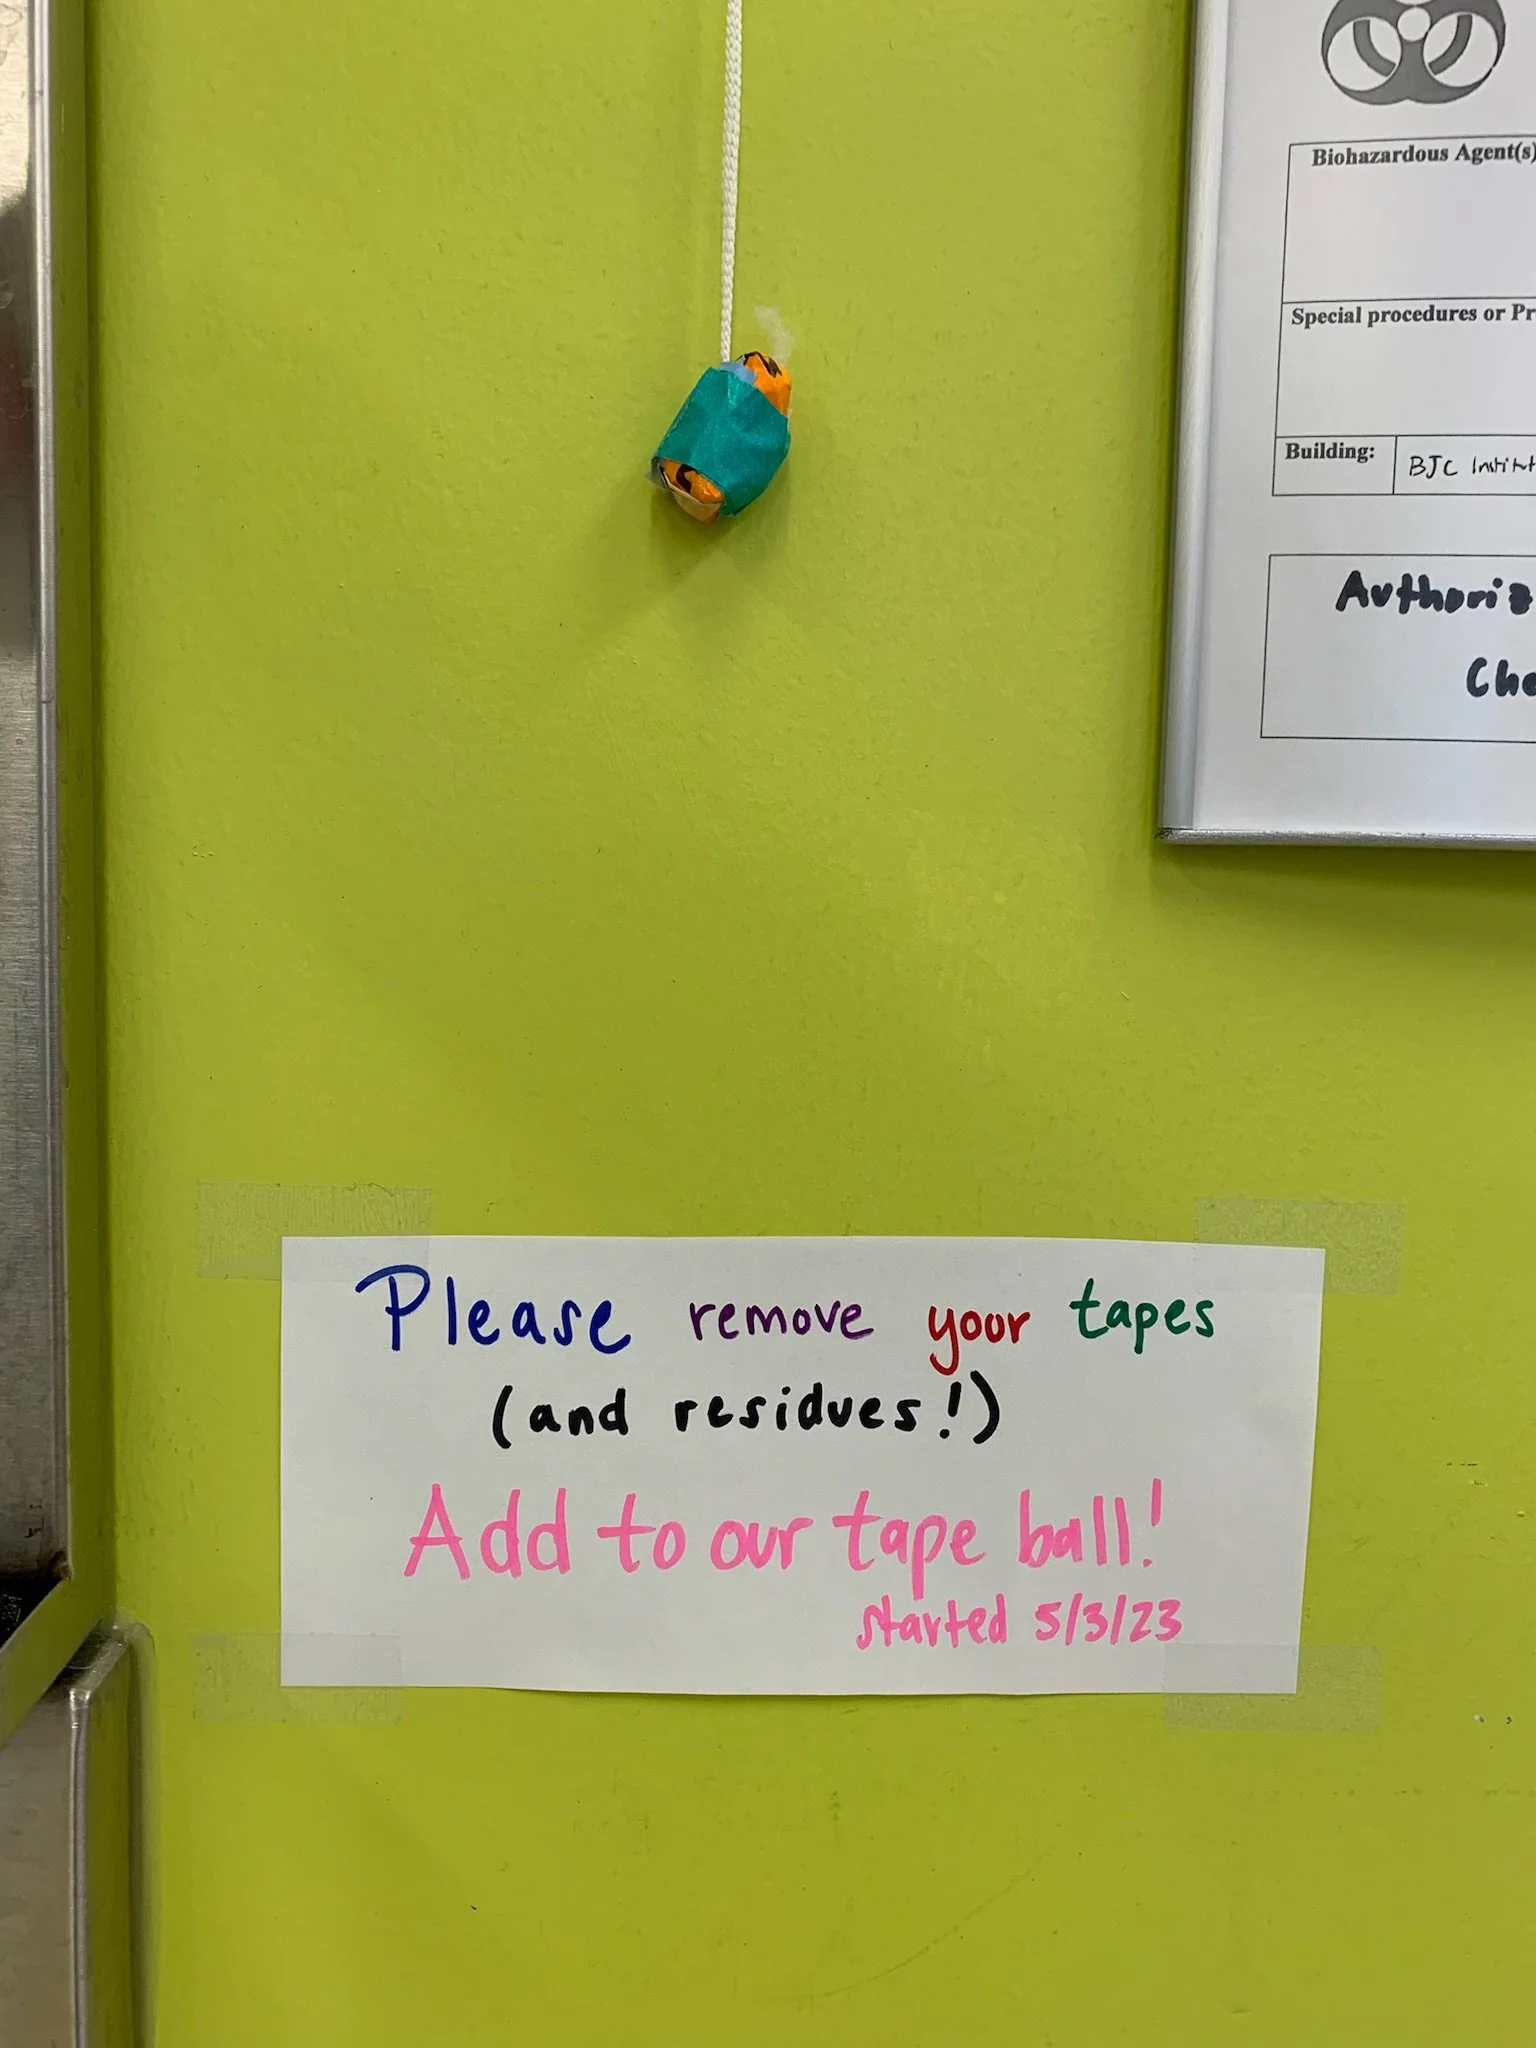 Biohazardous Agent(s)
Special procedures or Pr
Building:
BJC Instit
Authoriz
Che
Please remove your tapes
(and residues!)
Add to our tape ball!
started 5/3/23